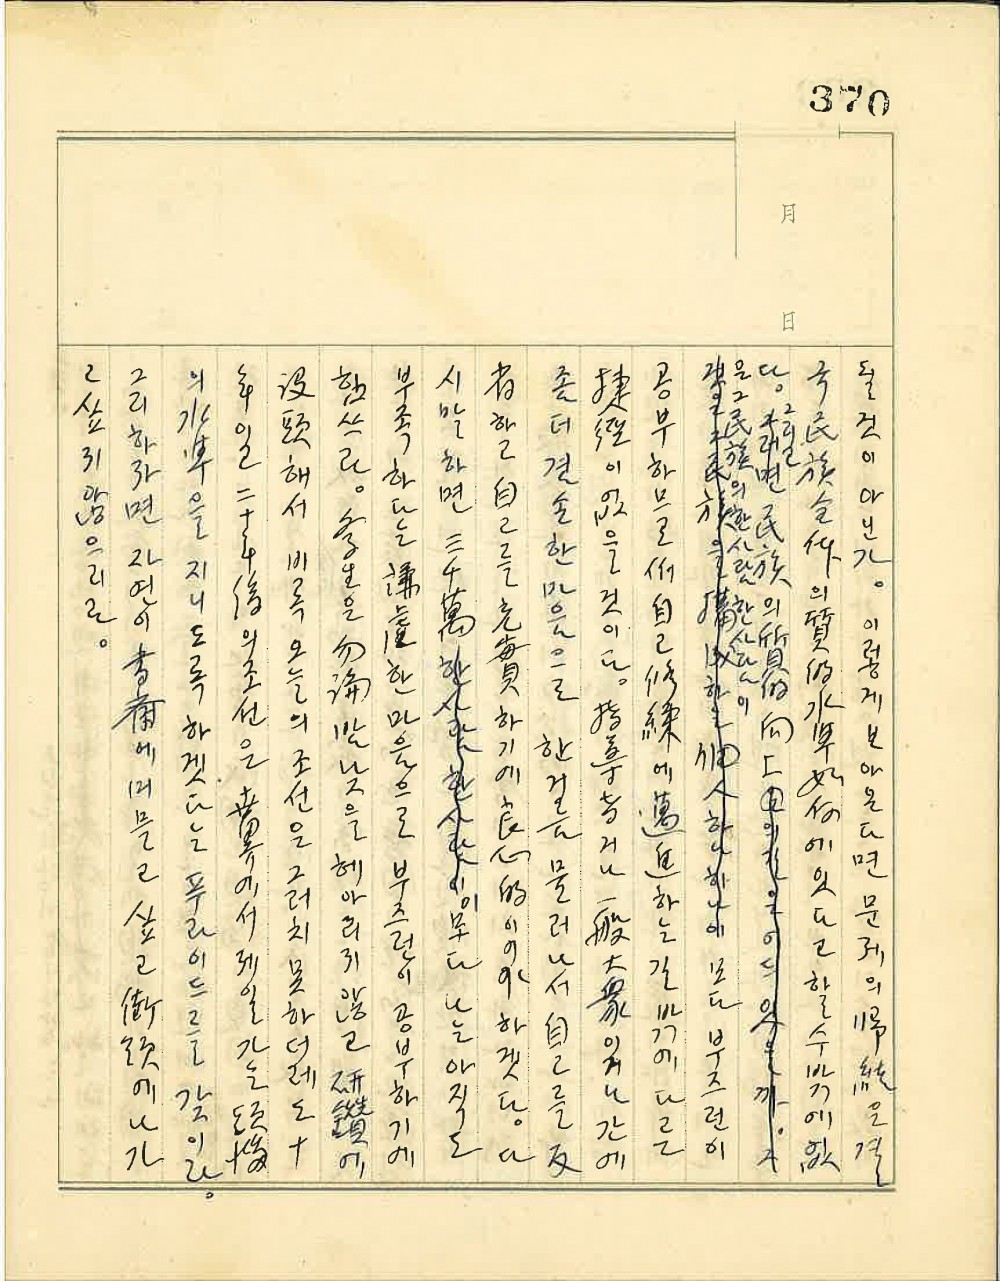 370
月
日
될것이아닌가。이렇게보아온다면문제의歸結은결
국民族全体의質的水準如何에있다고할수밖에없
다。그러면民族의質的向上
그럼
은그民族의한사람한사람이
民族을構成하는個人하나하나에모다부즈런이
공부하므로써自己修練에邁進하는길밖에다른
捷徑이없을것이다。指導者거나一般大衆이거나간에
좀더겸손한마음으로한걸음물러나서自己를反
省하고自己를充實하기에良心的이어야하겠다。다
시말하면三千萬한사람한사람이모다나는아직도
부족하다는謙虛한마음으로부즈런이공부하기에
힘쓰라。学生은勿論밤낮을헤아리지않고研鑽에
沒頭해서비록오늘의조선은그러치못하더레도十
年일二十年後의조선은世界에서제일가는頭悩
의水準을지니도록하겠다는푸라이드를갖이라。
그리하자면자연이書斎에머물고싶고街頭에나가
고싶지않으리라。